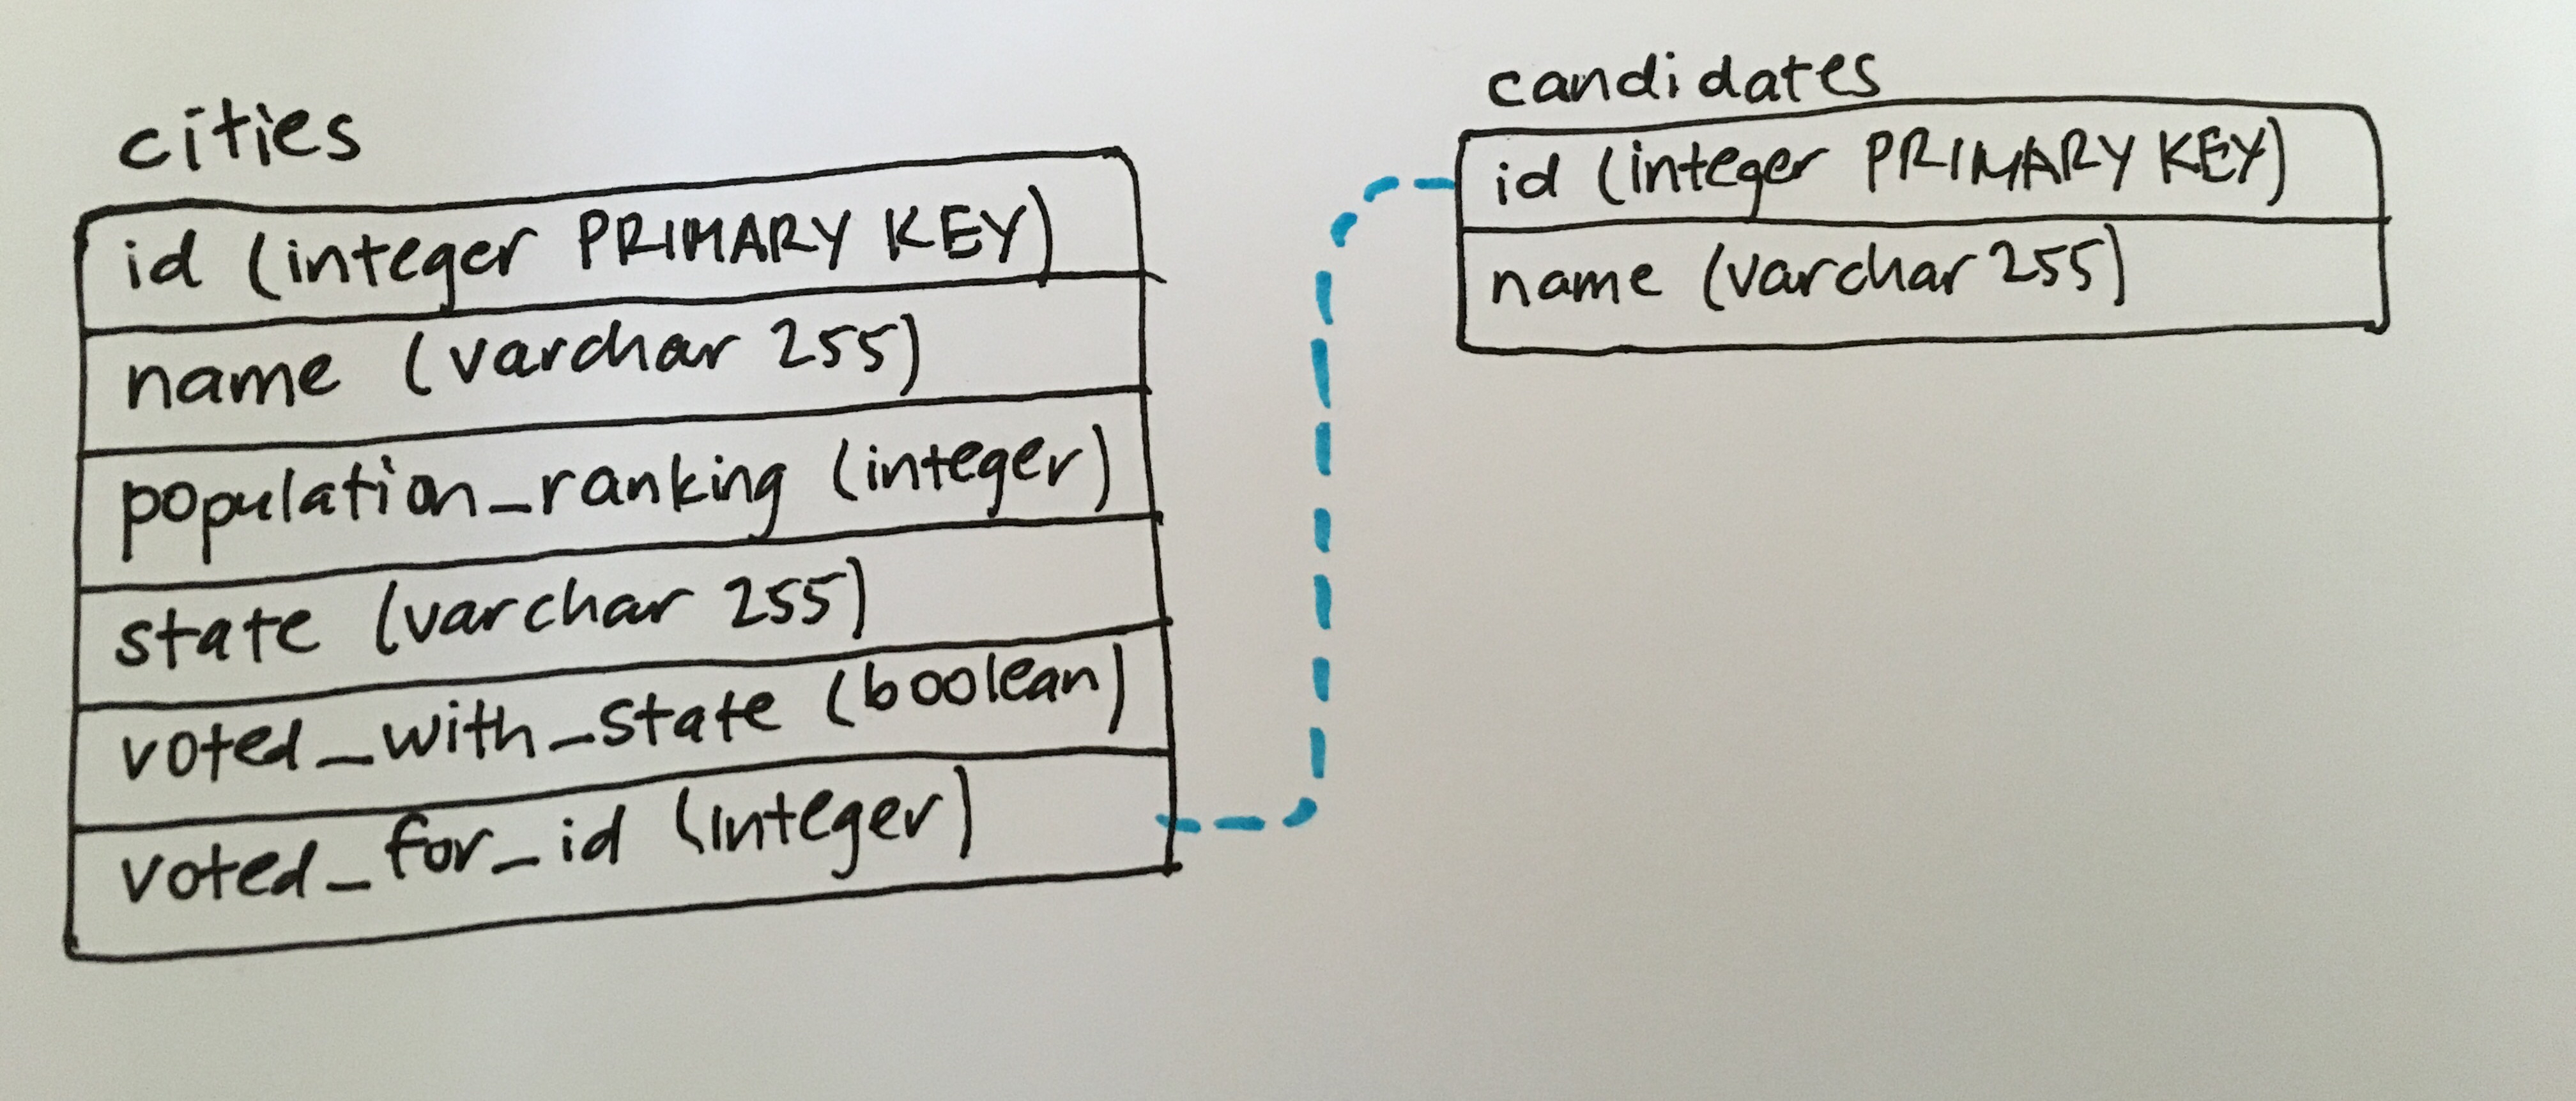 cities
id (integer PRIMARY KEY)
name (varchar 255)
population_ranking (integer)
state (varchar 255)
voted_with_state (boolean)
voted_for_id (integer)
candidates
id (integer PRIMARY KEY)
name (varchar 255)